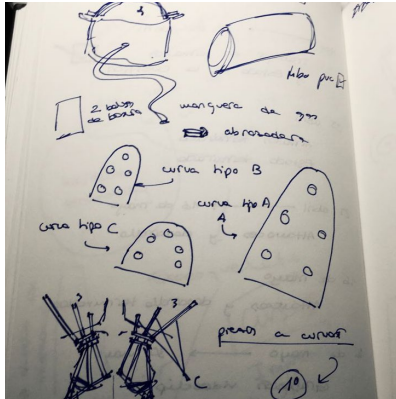 3
tubo pvc
2 bolsas
de basura
manguera de gas
abrazadera
curva tipo B
curva tipo A
4
6
curva tipo C
3
3
C
piezas a curvar
1º